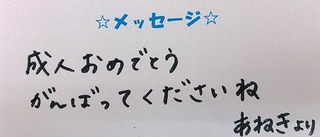 ☆メッセージ☆
成人おめでとう
がんばってくださいね
あねきより